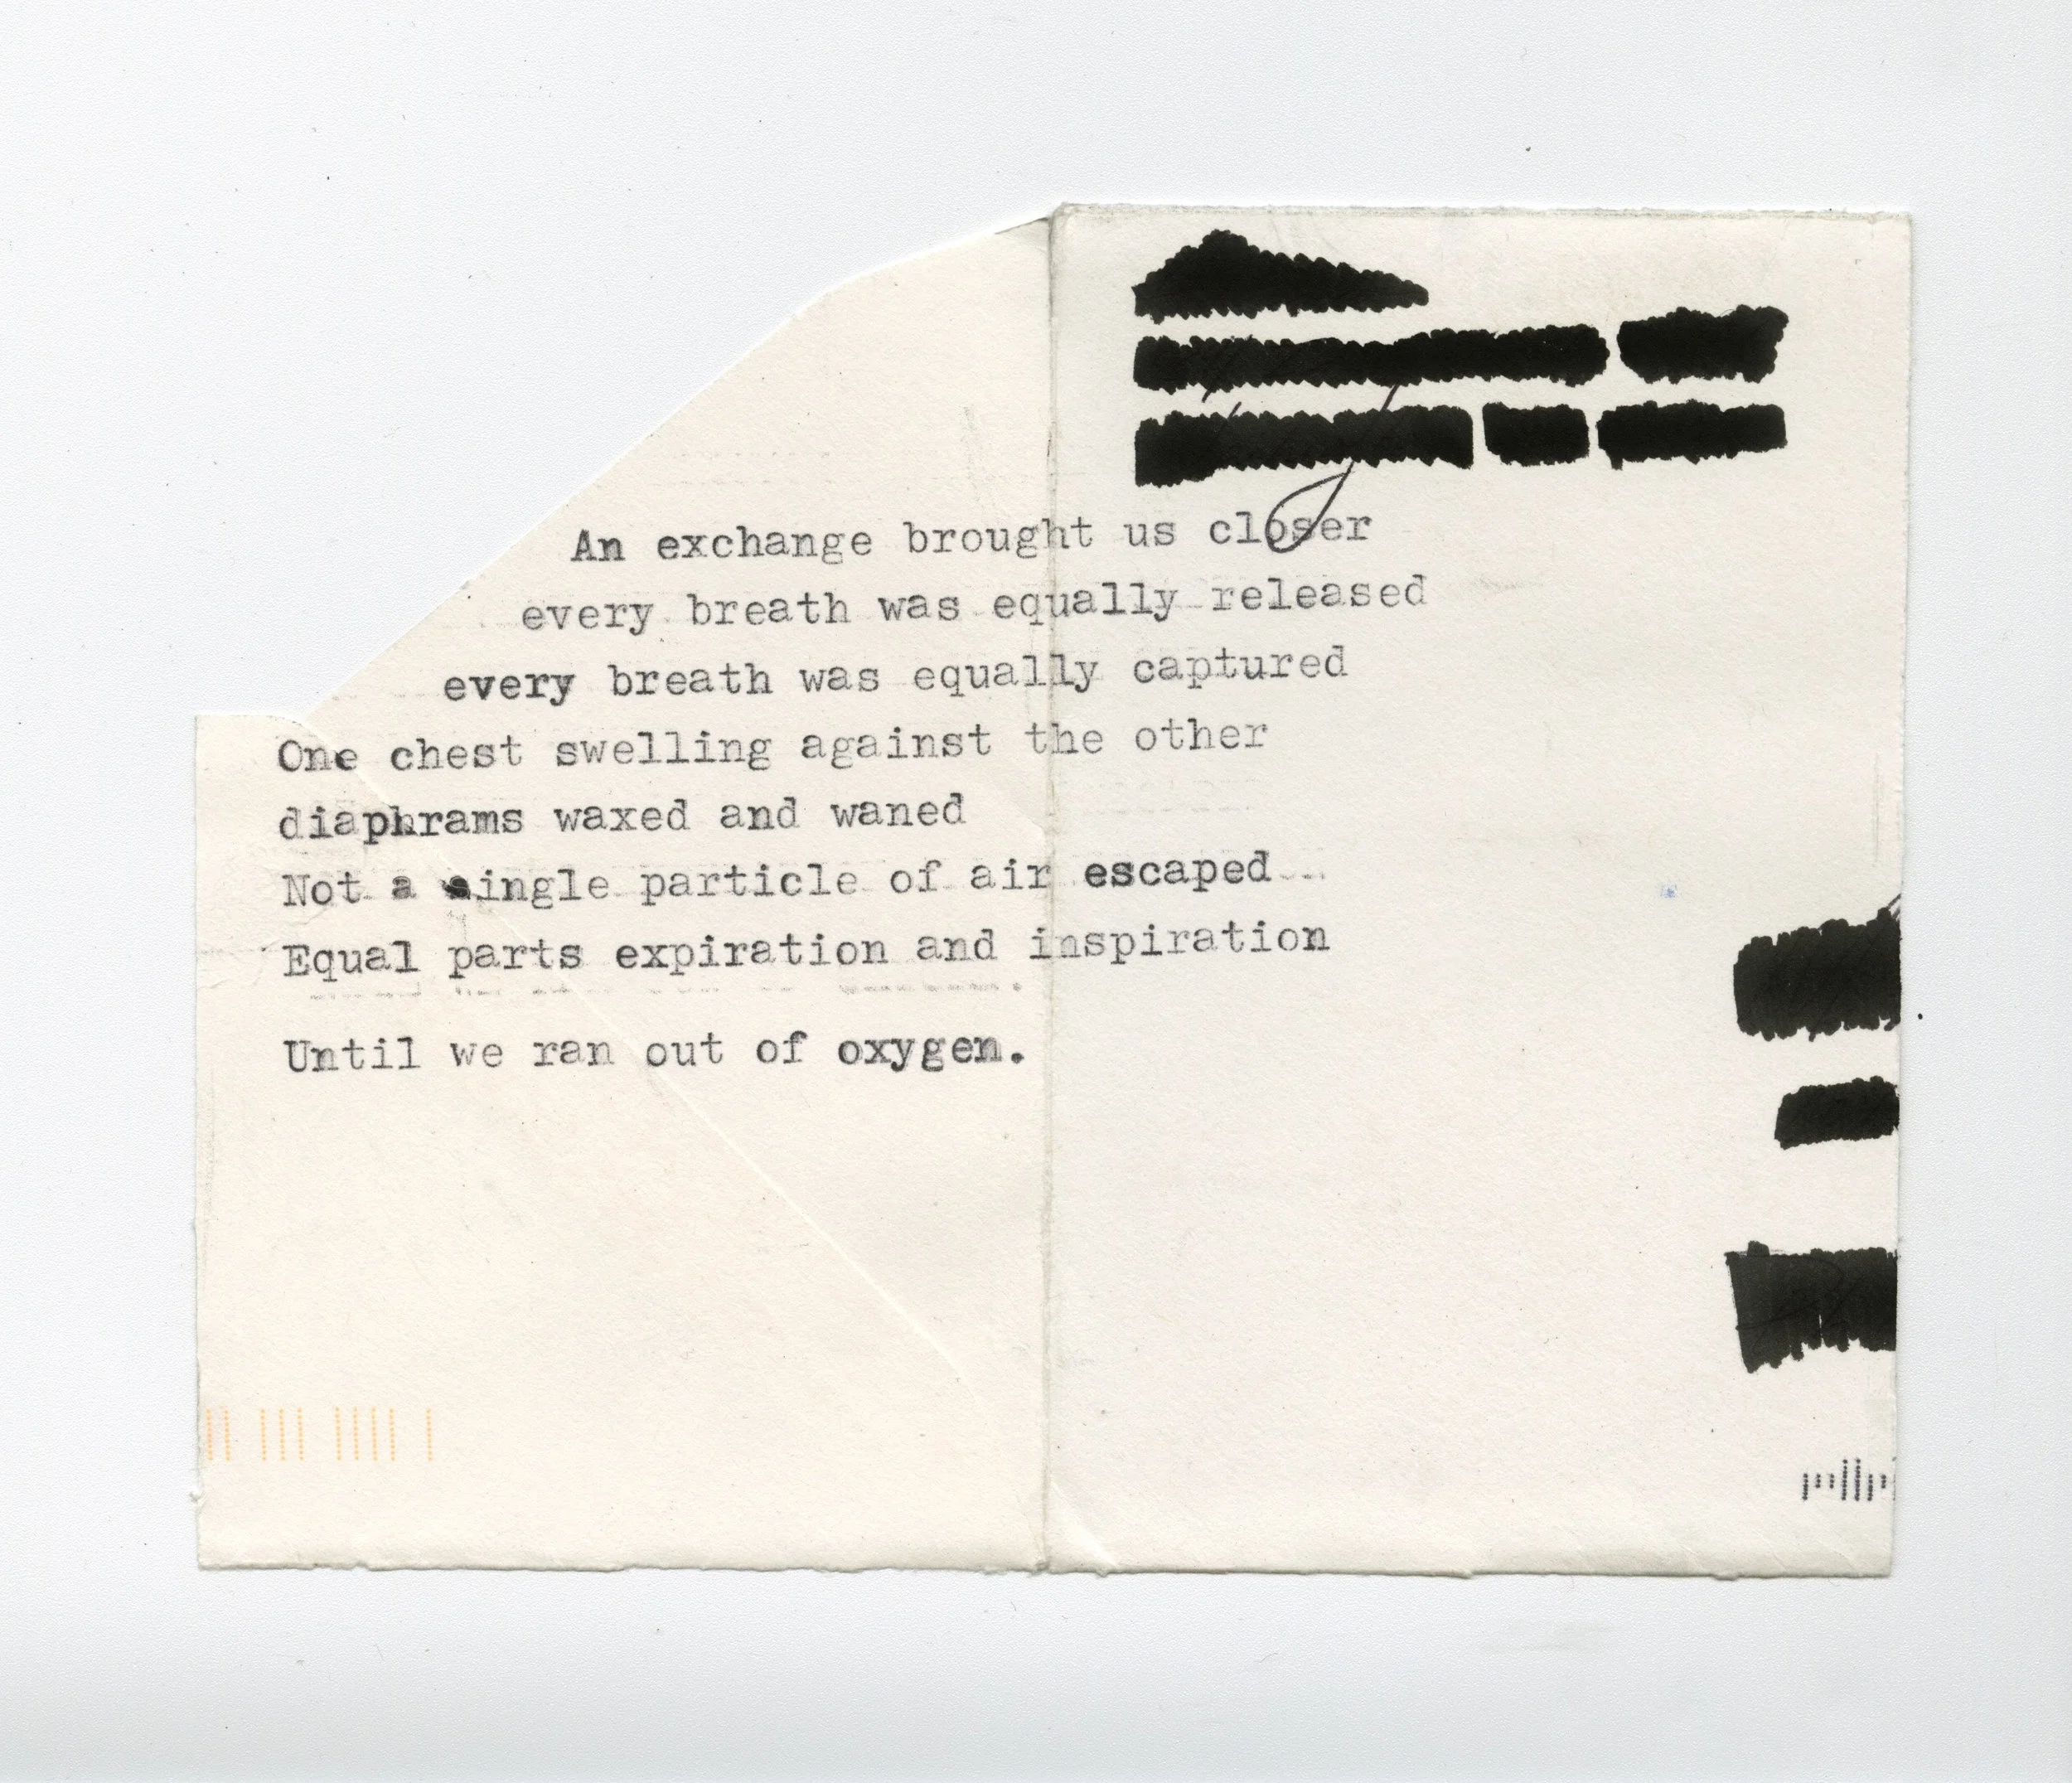 An exchange brought us closer
every breath was equally released
every breath was equally captured
One chest swelling against the other
diaphrams waxed and waned
Not a single particle of air escaped
Equal parts expiration and inspiration
Until we ran out of oxygen.